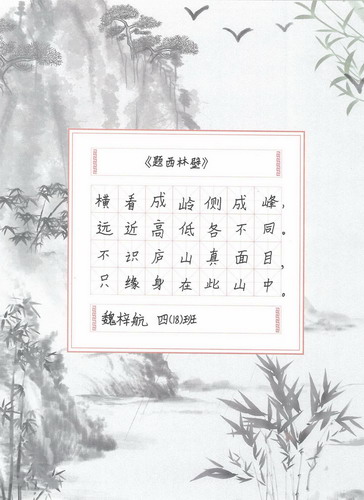 《题西林壁》
横看成岭侧成峰，
远近高低各不同。
不识庐山真面目，
只缘身在此山中。
魏梓航 四(18)班